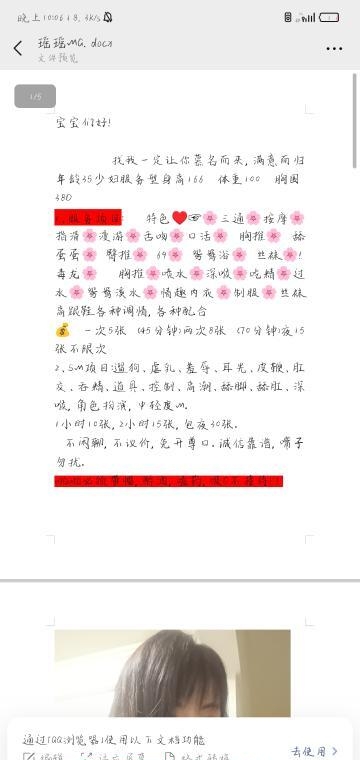 晚上10:06 | 8.3K/s
瑶瑶MG.docx
文件预览
1/5
宝宝们好!
找我一定让你慕名而来,满意而归
年龄35少妇服务型身高166 体重100 胸围
380
特色❤️👓🌸三通🌸按摩🌸
指滑🌸漫游🌸舌吻🌸口活🌸 胸推🌸 舔
蛋蛋🌸 臂推🌸 69🌸 鸳鸯浴🌸 丝袜🌸!
毒龙🌸 胸推🌸喷水🌸深喉🌸吃精🌸过
水🌸鸳鸯戏水🌸情趣内衣🌸制服🌸丝袜
高跟鞋各种调情,各种配合
💰 一次5张 (45分钟)两次8张 (70分钟)夜15
张不限次
2,SM项目遛狗、虐乳、羞辱、耳光、皮鞭、肛
交、吞精、道具、控制、高潮、舔脚、舔肛、深
喉,角色扮演,中轻度M.
1小时10张,2小时15张,包夜30张.
不闲聊,不议价,免开尊口.诚信靠谱,嘴子
勿扰.
通过QQ浏览器使用以下文档功能
去使用